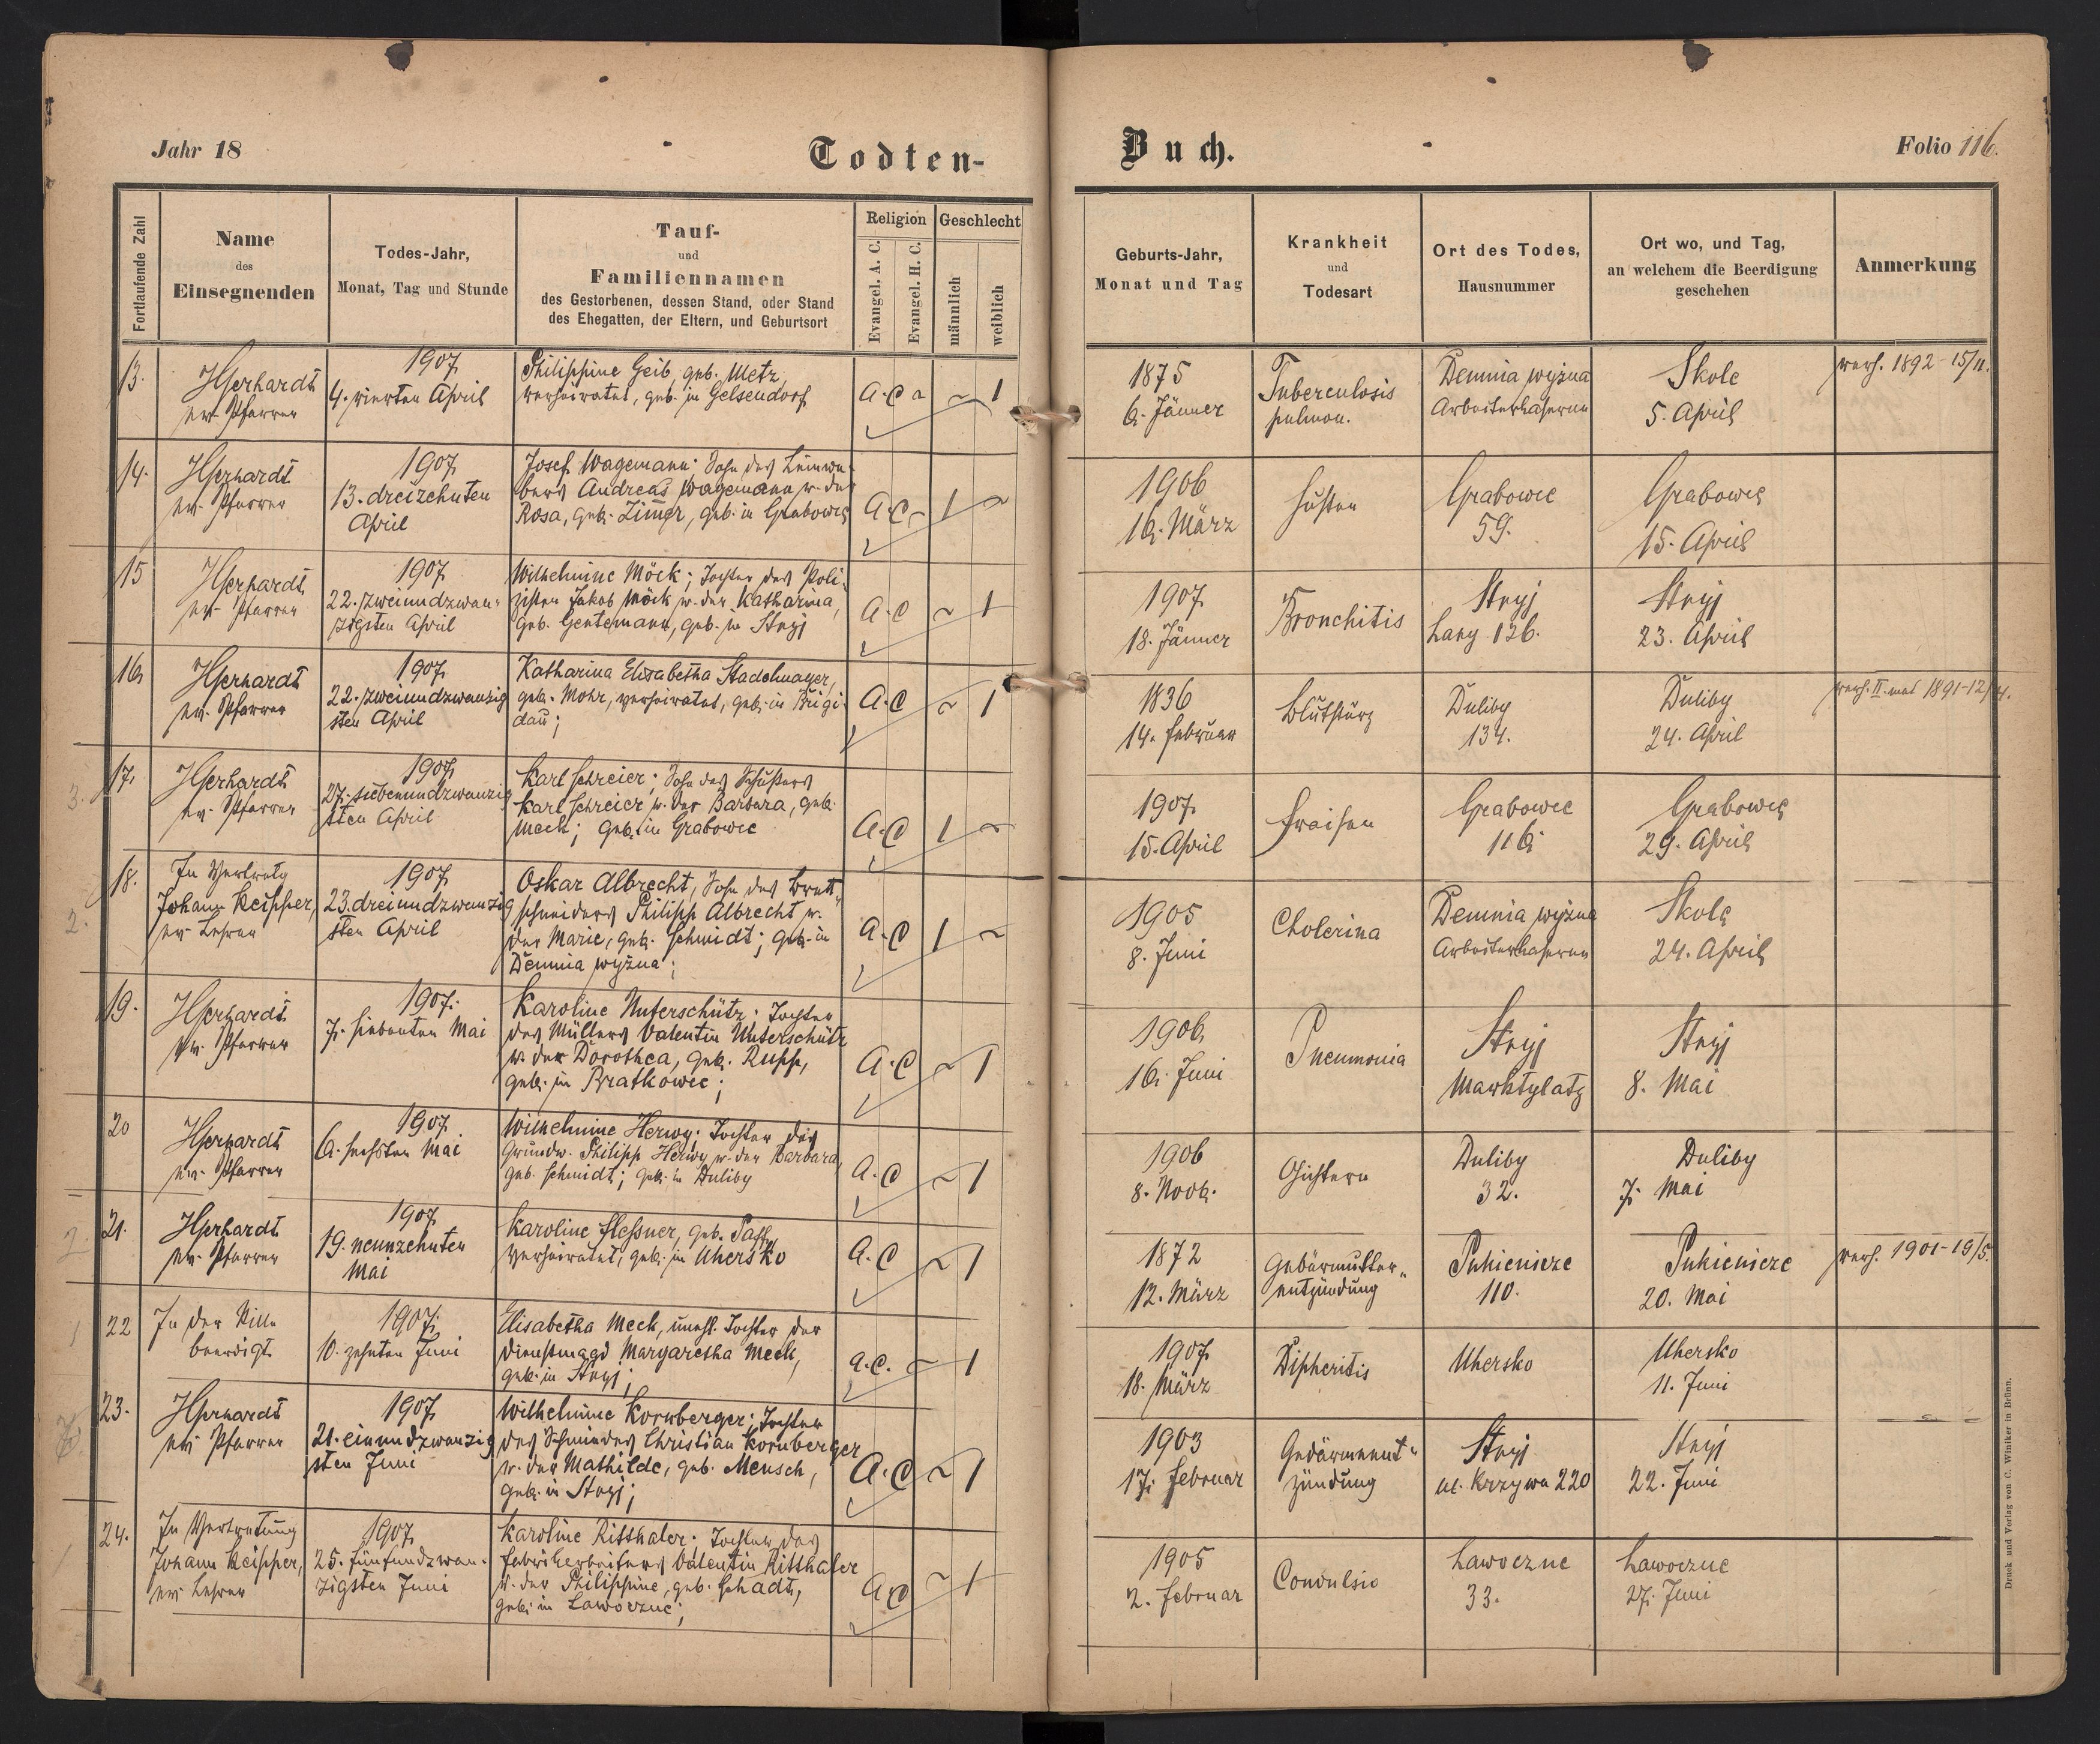 Jahr 18
Todten-
Fortlaufende Zahl
Name
des
Einsegnenden
Todes-Jahr,
Monat, Tag und Stunde
Tauf-
und
Familiennamen
des Gestorbenen, dessen Stand, oder Stand
des Ehegatten, der Eltern, und Geburtsort
Religion
Evangel. A. C.
Evangel. H. C.
Geschlecht
männlich
weiblich
13.
HGerhardt
ev. Pfarrer
1907
4. vierten April
Philippine Geib, geb. Metz,
verheiratet, geb. in Gelsendorf
A.C
1
14.
HGerhardt
ev. Pfarrer
1907
13. dreizehnten
April
Josef Wagemann; Sohn des Leinwe-
bers Andreas Wagemann u. der
Rosa, geb. Zimer, geb. in Grabowce
A.C
1
15
HGerhardt
ev. Pfarrer
1907
22. zweiundzwan-
zigsten April
Wilhelmine Möck; Tochter des Poli-
zisten Jakob Möck u. der Katharina,
geb. Gentemann, geb. in Stryj
A.C
1
16
HGerhardt
ev. Pfarrer
1907
22. zweiundzwanzig
sten April
Katharina Elisabetha Stadelmayer,
geb. Mohr, verheiratet, geb. in Brigi-
dau;
A.C
1
17.
HGerhardt
ev. Pfarrer
1907
27. siebenundzwanzig
sten April
Karl Schreier; Sohn des
Karl Schreier u. der Barbara, geb.
Meck; geb. in Grabowce
A.C
1
18.
In Vertretg
Johann Keipper,
ev. Lehrer
1907
23. dreiundzwanzig
sten April
Oskar Albrecht, Sohn des Brett-
schneiders Philipp Albrecht u.
der Marie, geb. Schmidt; geb. in
Demnia wyżna;
A.C
1
19.
HGerhardt
ev. Pfarrer
1907.
7. siebenten Mai
Karoline Unterschütz; Tochter
des Müllers Valentin Unterschütz
u. der Dorothea, geb. Rupp,
geb. in Bratkowce;
A.C
1
20
HGerhardt
ev. Pfarrer
1907
6. sechsten Mai
Wilhelmine Herwy; Tochter des
Grundw. Philipp Herwy u. der Barbara,
geb. Schmidt; geb. in Duliby
A.C
1
21.
HGerhardt
ev. Pfarrer
1907
19. neunzehnten
Mai
Karoline Flessner, geb.
verheiratet, geb. in Uhersko
A.C
1
22
In der Stille
beerdigt
1907.
10. zehnten Juni
Elisabetha Meck, unehl. Tochter der
Dienstmagd Margaretha Meck,
geb. in Stryj;
A.C.
1
23.
HGerhardt
ev. Pfarrer
1907
21. einundzwanzig
sten Juni
Wilhelmine Kornberger; Tochter
des Schmiedes Christian Kornberger
u. der Mathilde, geb. Mensch,
geb. in Stryj;
A.C
1
24.
In Vertretung
Johann Keipper,
ev. Lehrer
1907
25. fünfundzwan-
zigsten Juni
Karoline Ritthaler; Tochter des
Fabrikarbeiters Valentin Ritthaler
u. der Philippine, geb. Schadt,
geb. in Lawoczne;
A.C
1
Buch.
Folio 116.
Geburts-Jahr,
Monat und Tag
Krankheit
und
Todesart
Ort des Todes,
Hausnummer
Ort wo, und Tag,
an welchem die Beerdigung
geschehen
Anmerkung
1875
6. Jänner
Tuberculosis
pulmon.
Demnia wyżna
Arbeiterkaserne
Skole
5. April
verh. 1892-15/11.
1906
16. März
Husten
Grabowce
59.
Grabowce
15. April
1907
18. Jänner
Bronchitis
Stryj
Lany 136.
Stryj
23. April
1836
14. Februar
Blutsturz
Duliby
134.
Duliby
24. April
verh. II. mal 1891-12/4.
1907
15. April
Fraisen
Grabowce
116.
Grabowce
29. April
1905
8. Juni
Cholerina
Demnia wyżna
Arbeiterkaserne
Skole
24. April
1906
16. Juni
Pneumonia
Stryj
Marktplatz
Stryj
8. Mai
1906
8. Novb.
Duliby
32.
Duliby
7. Mai
1872
12. März
Gebärmutter-
entzündung
Pukienicze
110.
Pukienicze
20. Mai
verh. 1901-19/5.
1907
18. März
Dipheritis
Uhersko
Uhersko
11. Juni
1903
17. Februar
Gedärmeent-
zündung
Stryj
ul. Krzywa 220
Stryj
22. Juni
1905
2. Februar
Convulsio
Lawoczne
33.
Lawoczne
27. Juni
Druck und Verlag von C. Winiker in Brünn.